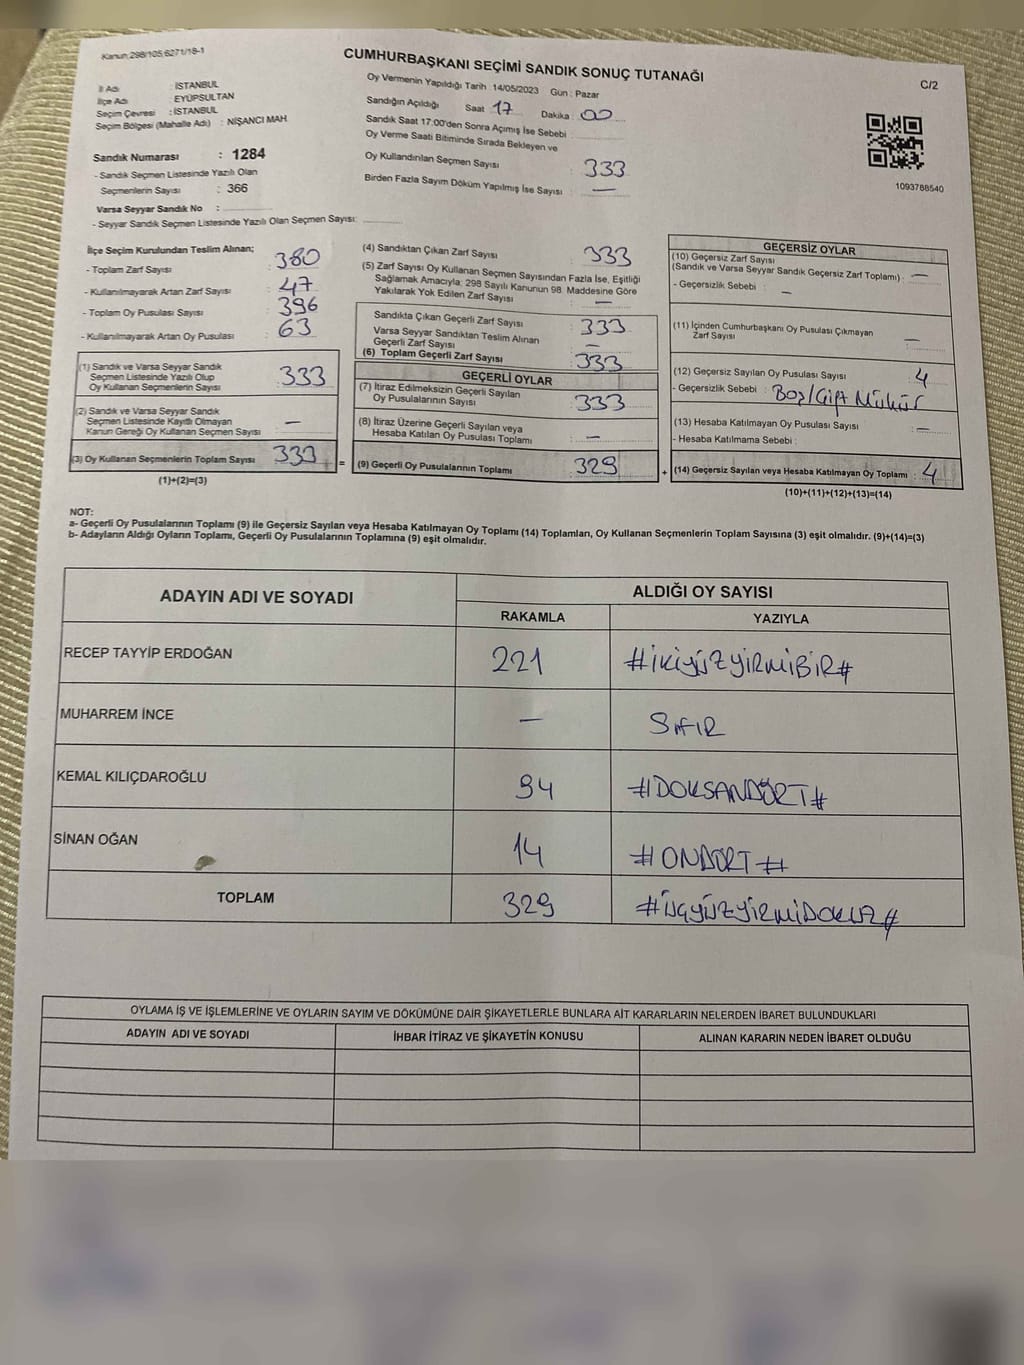 Kanun: 298/105,6271/18-1
CUMHURBAŞKANI SEÇİMİ SANDIK SONUÇ TUTANAĞI
C/2
İl Adı : İSTANBUL
İlçe Adı : EYÜPSULTAN
Seçim Çevresi : İSTANBUL
Seçim Bölgesi (Mahalle Adı) : NİŞANCI MAH.
Sandık Numarası : 1284
- Sandık Seçmen Listesinde Yazılı Olan
Seçmenlerin Sayısı : 366
Varsa Seyyar Sandık No :
- Seyyar Sandık Seçmen Listesinde Yazılı Olan Seçmen Sayısı:
Oy Vermenin Yapıldığı Tarih 14/05/2023 Gün : Pazar
Sandığın Açıldığı Saat 17 Dakika : 00
Sandık Saat 17:00'den Sonra Açımış İse Sebebi :
Oy Verme Saati Bitiminde Sırada Bekleyen ve
Oy Kullandırılan Seçmen Sayısı : 333
Birden Fazla Sayım Döküm Yapılmış İse Sayısı : —
1093788540
İlçe Seçim Kurulundan Teslim Alınan;
- Toplam Zarf Sayısı : 380
- Kullanılmayarak Artan Zarf Sayısı : 47
- Toplam Oy Pusulası Sayısı : 396
- Kullanılmayarak Artan Oy Pusulası : 63
(1) Sandık ve Varsa Seyyar Sandık
Seçmen Listesinde Yazılı Olup
Oy Kullanan Seçmenlerin Sayısı : 333
(2) Sandık ve Varsa Seyyar Sandık
Seçmen Listesinde Kayıtlı Olmayan
Kanun Gereği Oy Kullanan Seçmen Sayısı : —
(3) Oy Kullanan Seçmenlerin Toplam Sayısı : 333
(1)+(2)=(3)
=
(4) Sandıktan Çıkan Zarf Sayısı : 333
(5) Zarf Sayısı Oy Kullanan Seçmen Sayısından Fazla İse, Eşitliği
Sağlamak Amacıyla; 298 Sayılı Kanunun 98. Maddesine Göre
Yakılarak Yok Edilen Zarf Sayısı : —
Sandıkta Çıkan Geçerli Zarf Sayısı : 333
Varsa Seyyar Sandıktan Teslim Alınan
Geçerli Zarf Sayısı : —
(6) Toplam Geçerli Zarf Sayısı : 333
GEÇERLİ OYLAR
(7) İtiraz Edilmeksizin Geçerli Sayılan
Oy Pusulalarının Sayısı : 333
(8) İtiraz Üzerine Geçerli Sayılan veya
Hesaba Katılan Oy Pusulası Toplamı : —
(9) Geçerli Oy Pusulalarının Toplamı : 329
+
GEÇERSİZ OYLAR
(10) Geçersiz Zarf Sayısı
(Sandık ve Varsa Seyyar Sandık Geçersiz Zarf Toplamı) : —
- Geçersizlik Sebebi : —
(11) İçinden Cumhurbaşkanı Oy Pusulası Çıkmayan
Zarf Sayısı : —
(12) Geçersiz Sayılan Oy Pusulası Sayısı : 4
- Geçersizlik Sebebi : Boş/Çift Mühür
(13) Hesaba Katılmayan Oy Pusulası Sayısı : —
- Hesaba Katılmama Sebebi :
(14) Geçersiz Sayılan veya Hesaba Katılmayan Oy Toplamı : 4
(10)+(11)+(12)+(13)=(14)
NOT:
a- Geçerli Oy Pusulalarının Toplamı (9) ile Geçersiz Sayılan veya Hesaba Katılmayan Oy Toplamı (14) Toplamları, Oy Kullanan Seçmenlerin Toplam Sayısına (3) eşit olmalıdır. (9)+(14)=(3)
b- Adayların Aldığı Oyların Toplamı, Geçerli Oy Pusulalarının Toplamına (9) eşit olmalıdır.
ADAYIN ADI VE SOYADI
ALDIĞI OY SAYISI
RAKAMLA YAZIYLA
RECEP TAYYİP ERDOĞAN 221 #İKİYÜZYİRMİBİR#
MUHARREM İNCE — SIFIR
KEMAL KILIÇDAROĞLU 94 #DOKSANDÖRT#
SİNAN OĞAN 14 #ONDÖRT#
TOPLAM 329 #ÜÇYÜZYİRMİDOKUZ#
OYLAMA İŞ VE İŞLEMLERİNE VE OYLARIN SAYIM VE DÖKÜMÜNE DAİR ŞİKAYETLERLE BUNLARA AİT KARARLARIN NELERDEN İBARET BULUNDUKLARI
ADAYIN ADI VE SOYADI İHBAR İTİRAZ VE ŞİKAYETİN KONUSU ALINAN KARARIN NEDEN İBARET OLDUĞU